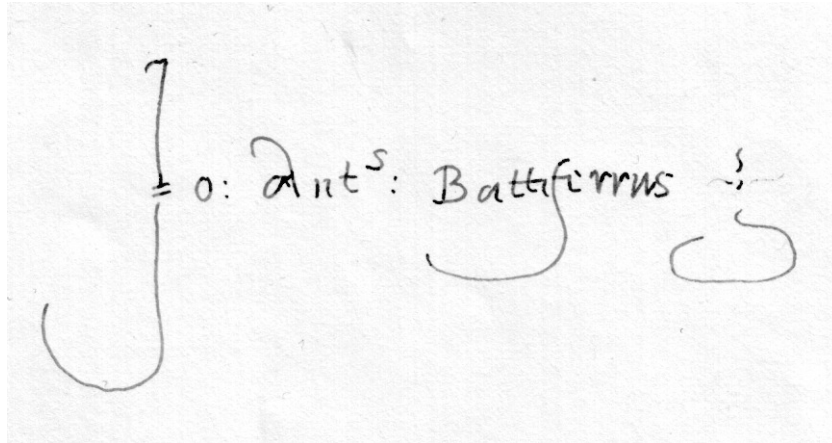 J=o: Ants: Battifirrus